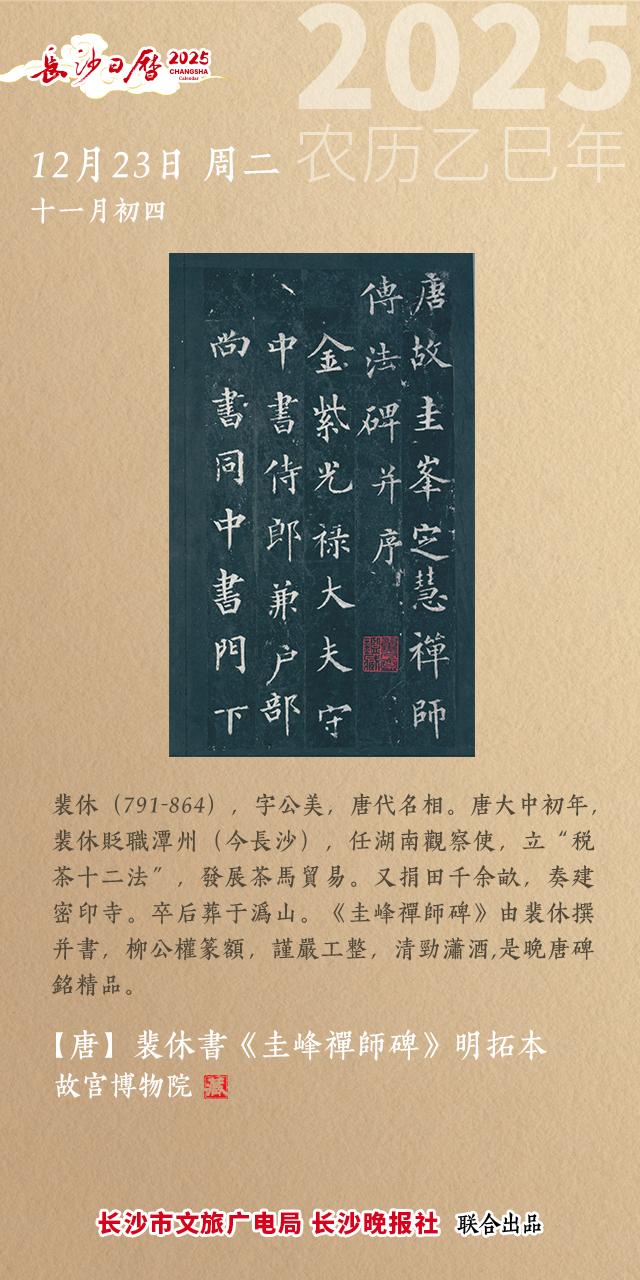 2025
长沙日历 2025
CHANGSHA
Calendar
农历乙巳年
12月23日 周二
十一月初四
唐故圭峯定慧禪師
傳法碑并序
金紫光祿大夫守
中書侍郎兼户部
尚書同中書門下
裴休（791-864），字公美，唐代名相。唐大中初年，
裴休貶職潭州（今長沙），任湖南觀察使，立“税
茶十二法”，發展茶馬貿易。又捐田千余畝，奏建
密印寺。卒后葬于潙山。《圭峰禪師碑》由裴休撰
并書，柳公權篆額，謹嚴工整，清勁瀟洒,是晚唐碑
銘精品。
【唐】裴休書《圭峰禪師碑》明拓本
故宫博物院 藏
长沙市文旅广电局 长沙晚报社 联合出品